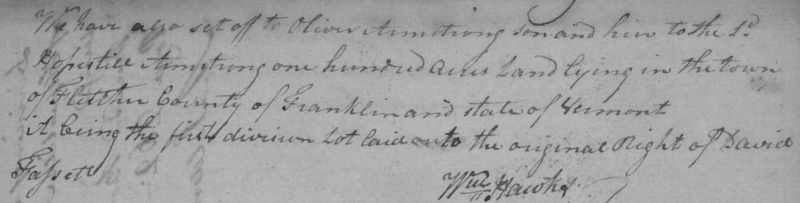 We have also set off to Oliver Armstrong son and heir to the Sd
Hopestill Armstrong one hundred acres Land lying in the town
of Fletcher County of Franklin and state of Vermont
it being the first division Lot laid out to the original Right of David
Fassett
Wm Hawks